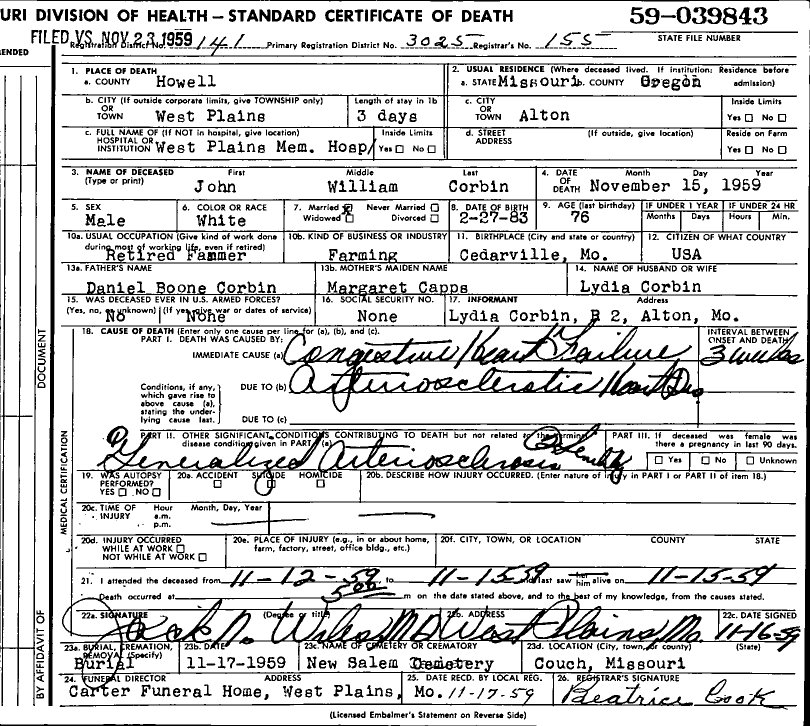 URI DIVISION OF HEALTH — STANDARD CERTIFICATE OF DEATH 59-039843
FILED VS. NOV 23 1959 Registration District No. 141 Primary Registration District No. 3025 Registrar's No. 155 STATE FILE NUMBER
ENDED
1. PLACE OF DEATH 2. USUAL RESIDENCE (Where deceased lived. If institution: Residence before admission)
a. COUNTY Howell a. STATE Missouri b. COUNTY Oregon
b. CITY (If outside corporate limits, give TOWNSHIP only) OR TOWN West Plains Length of stay in 1b 3 days c. CITY OR TOWN Alton Inside Limits Yes ☐ No ☐
c. FULL NAME OF (If NOT in hospital, give location) HOSPITAL OR INSTITUTION West Plains Mem. Hosp Inside Limits Yes ☐ No ☐ d. STREET ADDRESS (If outside, give location) Reside on Farm Yes ☐ No ☐
3. NAME OF DECEASED (Type or print) First Middle Last 4. DATE OF DEATH Month Day Year
John William Corbin November 15, 1959
5. SEX 6. COLOR OR RACE 7. Married ☒ Never Married ☐ Widowed ☐ Divorced ☐ 8. DATE OF BIRTH 9. AGE (last birthday) IF UNDER 1 YEAR Months Days IF UNDER 24 HR Hours Min.
Male White 2-27-83 76
10a. USUAL OCCUPATION (Give kind of work done during most of working life, even if retired) 10b. KIND OF BUSINESS OR INDUSTRY 11. BIRTHPLACE (City and state or country) 12. CITIZEN OF WHAT COUNTRY
Retired Fammer Farming Cedarville, Mo. USA
13a. FATHER'S NAME 13b. MOTHER'S MAIDEN NAME 14. NAME OF HUSBAND OR WIFE
Daniel Boone Corbin Margaret Capps Lydia Corbin
15. WAS DECEASED EVER IN U.S. ARMED FORCES? (Yes, no, or unknown) (If yes, give war or dates of service) 16. SOCIAL SECURITY NO. 17. INFORMANT Address
No None None Lydia Corbin, R 2, Alton, Mo.
18. CAUSE OF DEATH (Enter only one cause per line for (a), (b), and (c). INTERVAL BETWEEN ONSET AND DEATH
PART I. DEATH WAS CAUSED BY:
IMMEDIATE CAUSE (a) Congestive Heart Failure 3 weeks
Conditions, if any, which gave rise to above cause (a) stating the underlying cause last. DUE TO (b) Arteriosclerotic Heart Dis
DUE TO (c)
PART II. OTHER SIGNIFICANT CONDITIONS CONTRIBUTING TO DEATH but not related to the terminal disease condition given in PART I (a) PART III. If deceased was female was there a pregnancy in last 90 days.
Generalized Arteriosclerosis Senility ☐ Yes ☐ No ☐ Unknown
19. WAS AUTOPSY PERFORMED? YES ☐ NO ☐ 20a. ACCIDENT SUICIDE HOMICIDE ☐ ☐ ☐ 20b. DESCRIBE HOW INJURY OCCURRED. (Enter nature of injury in PART I or PART II of item 18.)
20c. TIME OF INJURY Hour a.m. p.m. Month, Day, Year
20d. INJURY OCCURRED WHILE AT WORK ☐ NOT WHILE AT WORK ☐ 20e. PLACE OF INJURY (e.g., in or about home, farm, factory, street, office bldg., etc.) 20f. CITY, TOWN, OR LOCATION COUNTY STATE
21. I attended the deceased from 11-12-59, to 11-15-59 and last saw her him alive on 11-15-59
Death occurred at 5:00 m on the date stated above, and to the best of my knowledge, from the causes stated.
22a. SIGNATURE (Degree or title) 22b. ADDRESS 22c. DATE SIGNED
Jack N. Wiles MD West Plains, Mo. 11-16-59
23a. BURIAL, CREMATION, REMOVAL (Specify) 23b. DATE 23c. NAME OF CEMETERY OR CREMATORY 23d. LOCATION (City, town, or county) (State)
Burial 11-17-1959 New Salem Cemetery Couch, Missouri
24. FUNERAL DIRECTOR ADDRESS 25. DATE RECD. BY LOCAL REG. 26. REGISTRAR'S SIGNATURE
Carter Funeral Home, West Plains, Mo. 11-17-59 Beatrice Cook
(Licensed Embalmer's Statement on Reverse Side)
DOCUMENT
MEDICAL CERTIFICATION
BY AFFIDAVIT OF